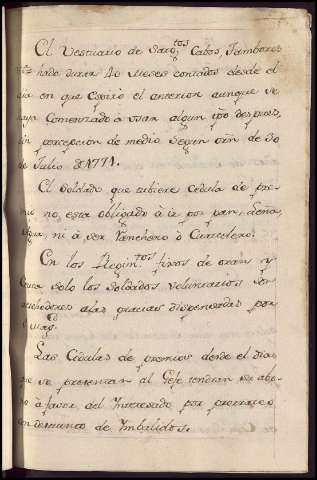 El Vestuario de Sargtos Cabos, Tambores
ha de durar 40 meses contados desde el
dia en que espiró el anterior aunque se
haya comenzado á usar algun tpo despues,
sin percepcion de medio segun orn de 30
de Julio de 1771.
El Soldado que tubiere cedula de pre-
mio no, esta obligado á ir por pan, Leña,
Agua, ni á ser Ranchero ó Quartelero.
En los Regimtos fixos de oran, y
Ceuta solo los Soldados voluntarios son
acrehedores alas gracias dispensadas por
S Mag.
Las Cedulas de premios desde el dia
que se presentan al Gefe tendran su abo-
no á favor del Interesado por prorrateo
con descuento de Imbalidos.